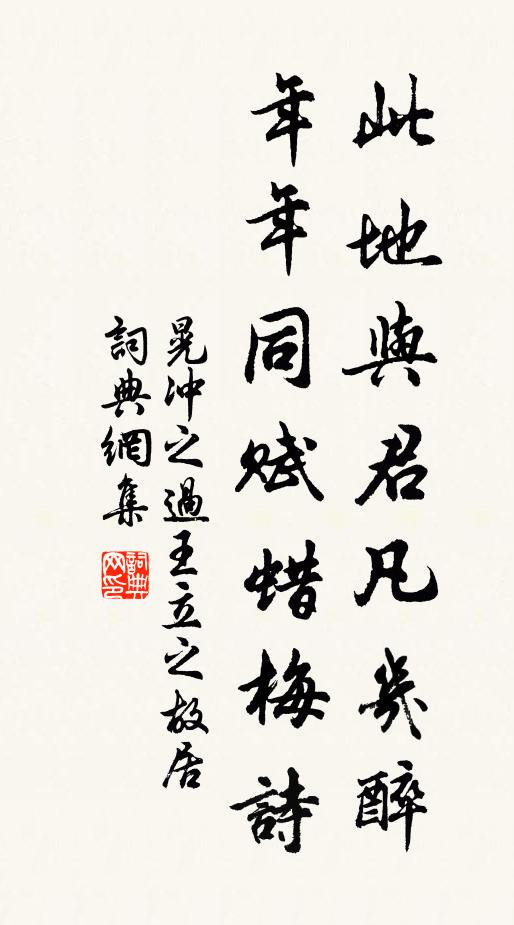 此地與君凡幾醉
年年同賦蜡梅詩
晁沖之過王立之故居
詞典網集
詞典網印